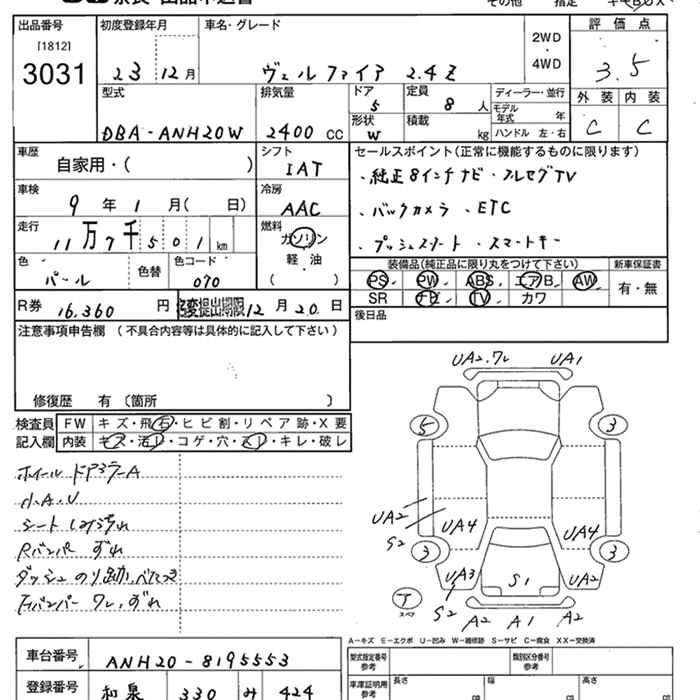 出品番号
[1812]
3031
初度登録年月
23 12 月
車名・グレード
ヴェルファイア 2.4Z
2WD
・
4WD
評価点
3.5
型式
DBA-ANH20W
排気量
2400 CC
ドア
5
形状
W
定員
8 人
積載
kg
ディーラー・並行
モデル年式 年
ハンドル 左・右
外装 内装
C C
車歴
自家用・( )
シフト
IAT
車検
9 年 1 月( 日)
冷房
AAC
走行
11万7千501 km
燃料
ガソリン
・
軽油
( )
色
パール
色替
色コード
070
セールスポイント(正常に機能するものに限ります)
・純正8インチナビ・フルセグTV
・バックカメラ ・ETC
・プッシュスタート ・スマートキー
装備品(純正品に限り丸をつけて下さい)
新車保証書
PS PW ABS エアB AW
有・無
SR TV カワ
後日品
R券
16.360 円
名変提出期限 12 月 20 日
注意事項申告欄 (不具合内容等は具体的に記入して下さい)
修復歴 有 〔箇所 〕
検査員
記入欄
FW キズ・飛石・ヒビ割・リペア跡・X要
内装 キズ・汚レ・コゲ・穴・スレ・キレ・破レ
小A.U
Rバンパー ずれ
UA2.ワレ UA1
5 3
UA2
S2
UA4 UA4
3 3
UA3 S1 UA2
S2 A2 A1 A2
T
スペア
A−キズ E−エクボ U−凹み W−補修跡 S−サビ C−腐食 XX−交換済
車台番号
ANH20-8195553
登録番号
和泉 330 み 424
型式指定番号
参考
類別区分番号
参考
車庫証明用
参考
長さ 幅 高さ